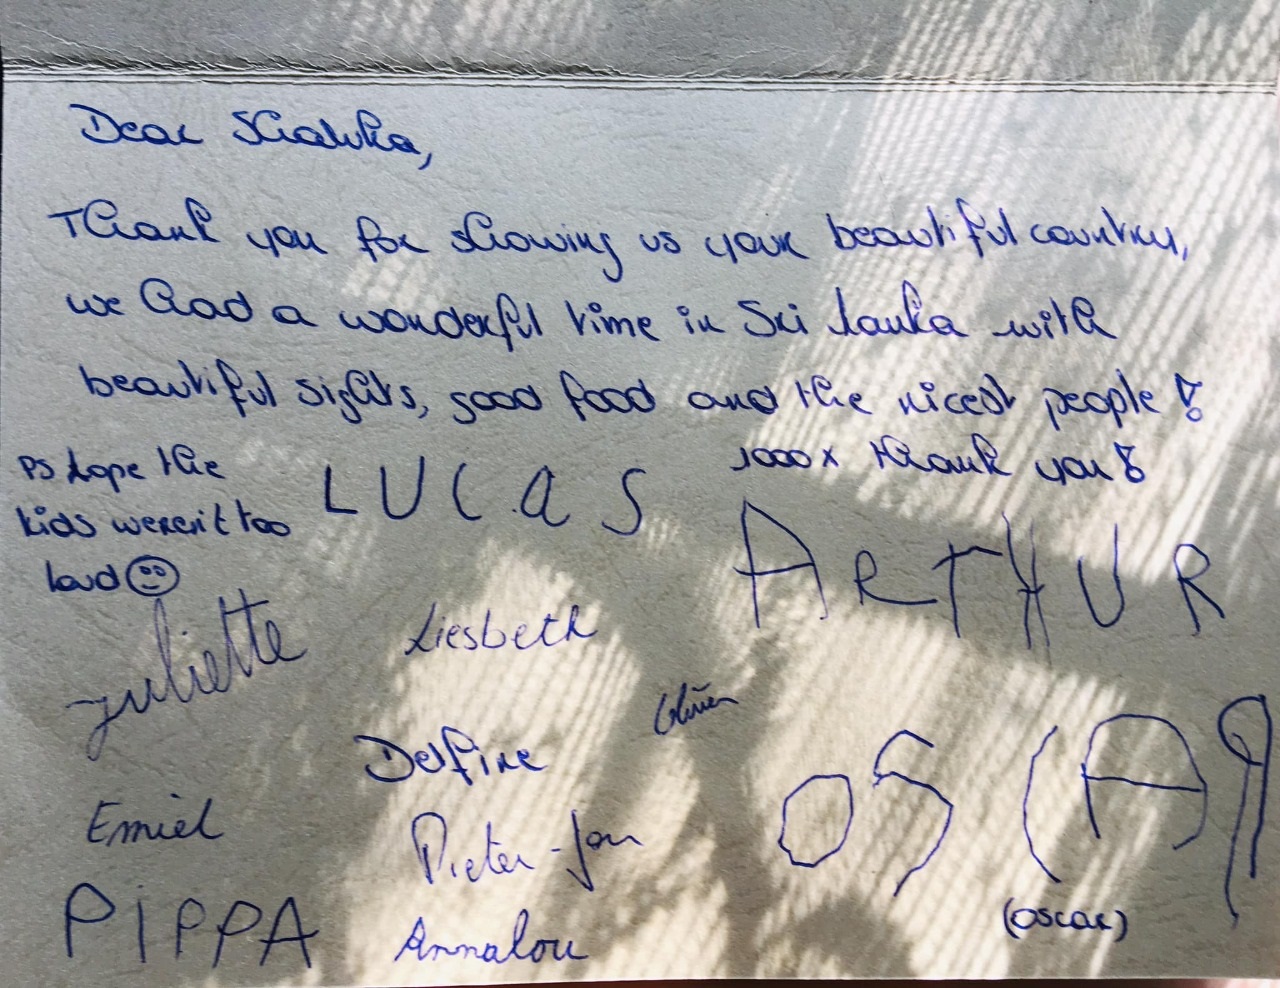 Dear Shanka,
Thank you for showing us your beautiful country,
we had a wonderful time in Sri Lanka with
beautiful sights, good food and the nicest people!
1000x thank you!
PS hope the
kids weren't too
loud
LUCaS
ARTHUR
Juliette
Liesbeth
Olivier
Delfine
OSCAR
Emiel
Pieter-Jan
(oscar)
PiPPA
Annalou